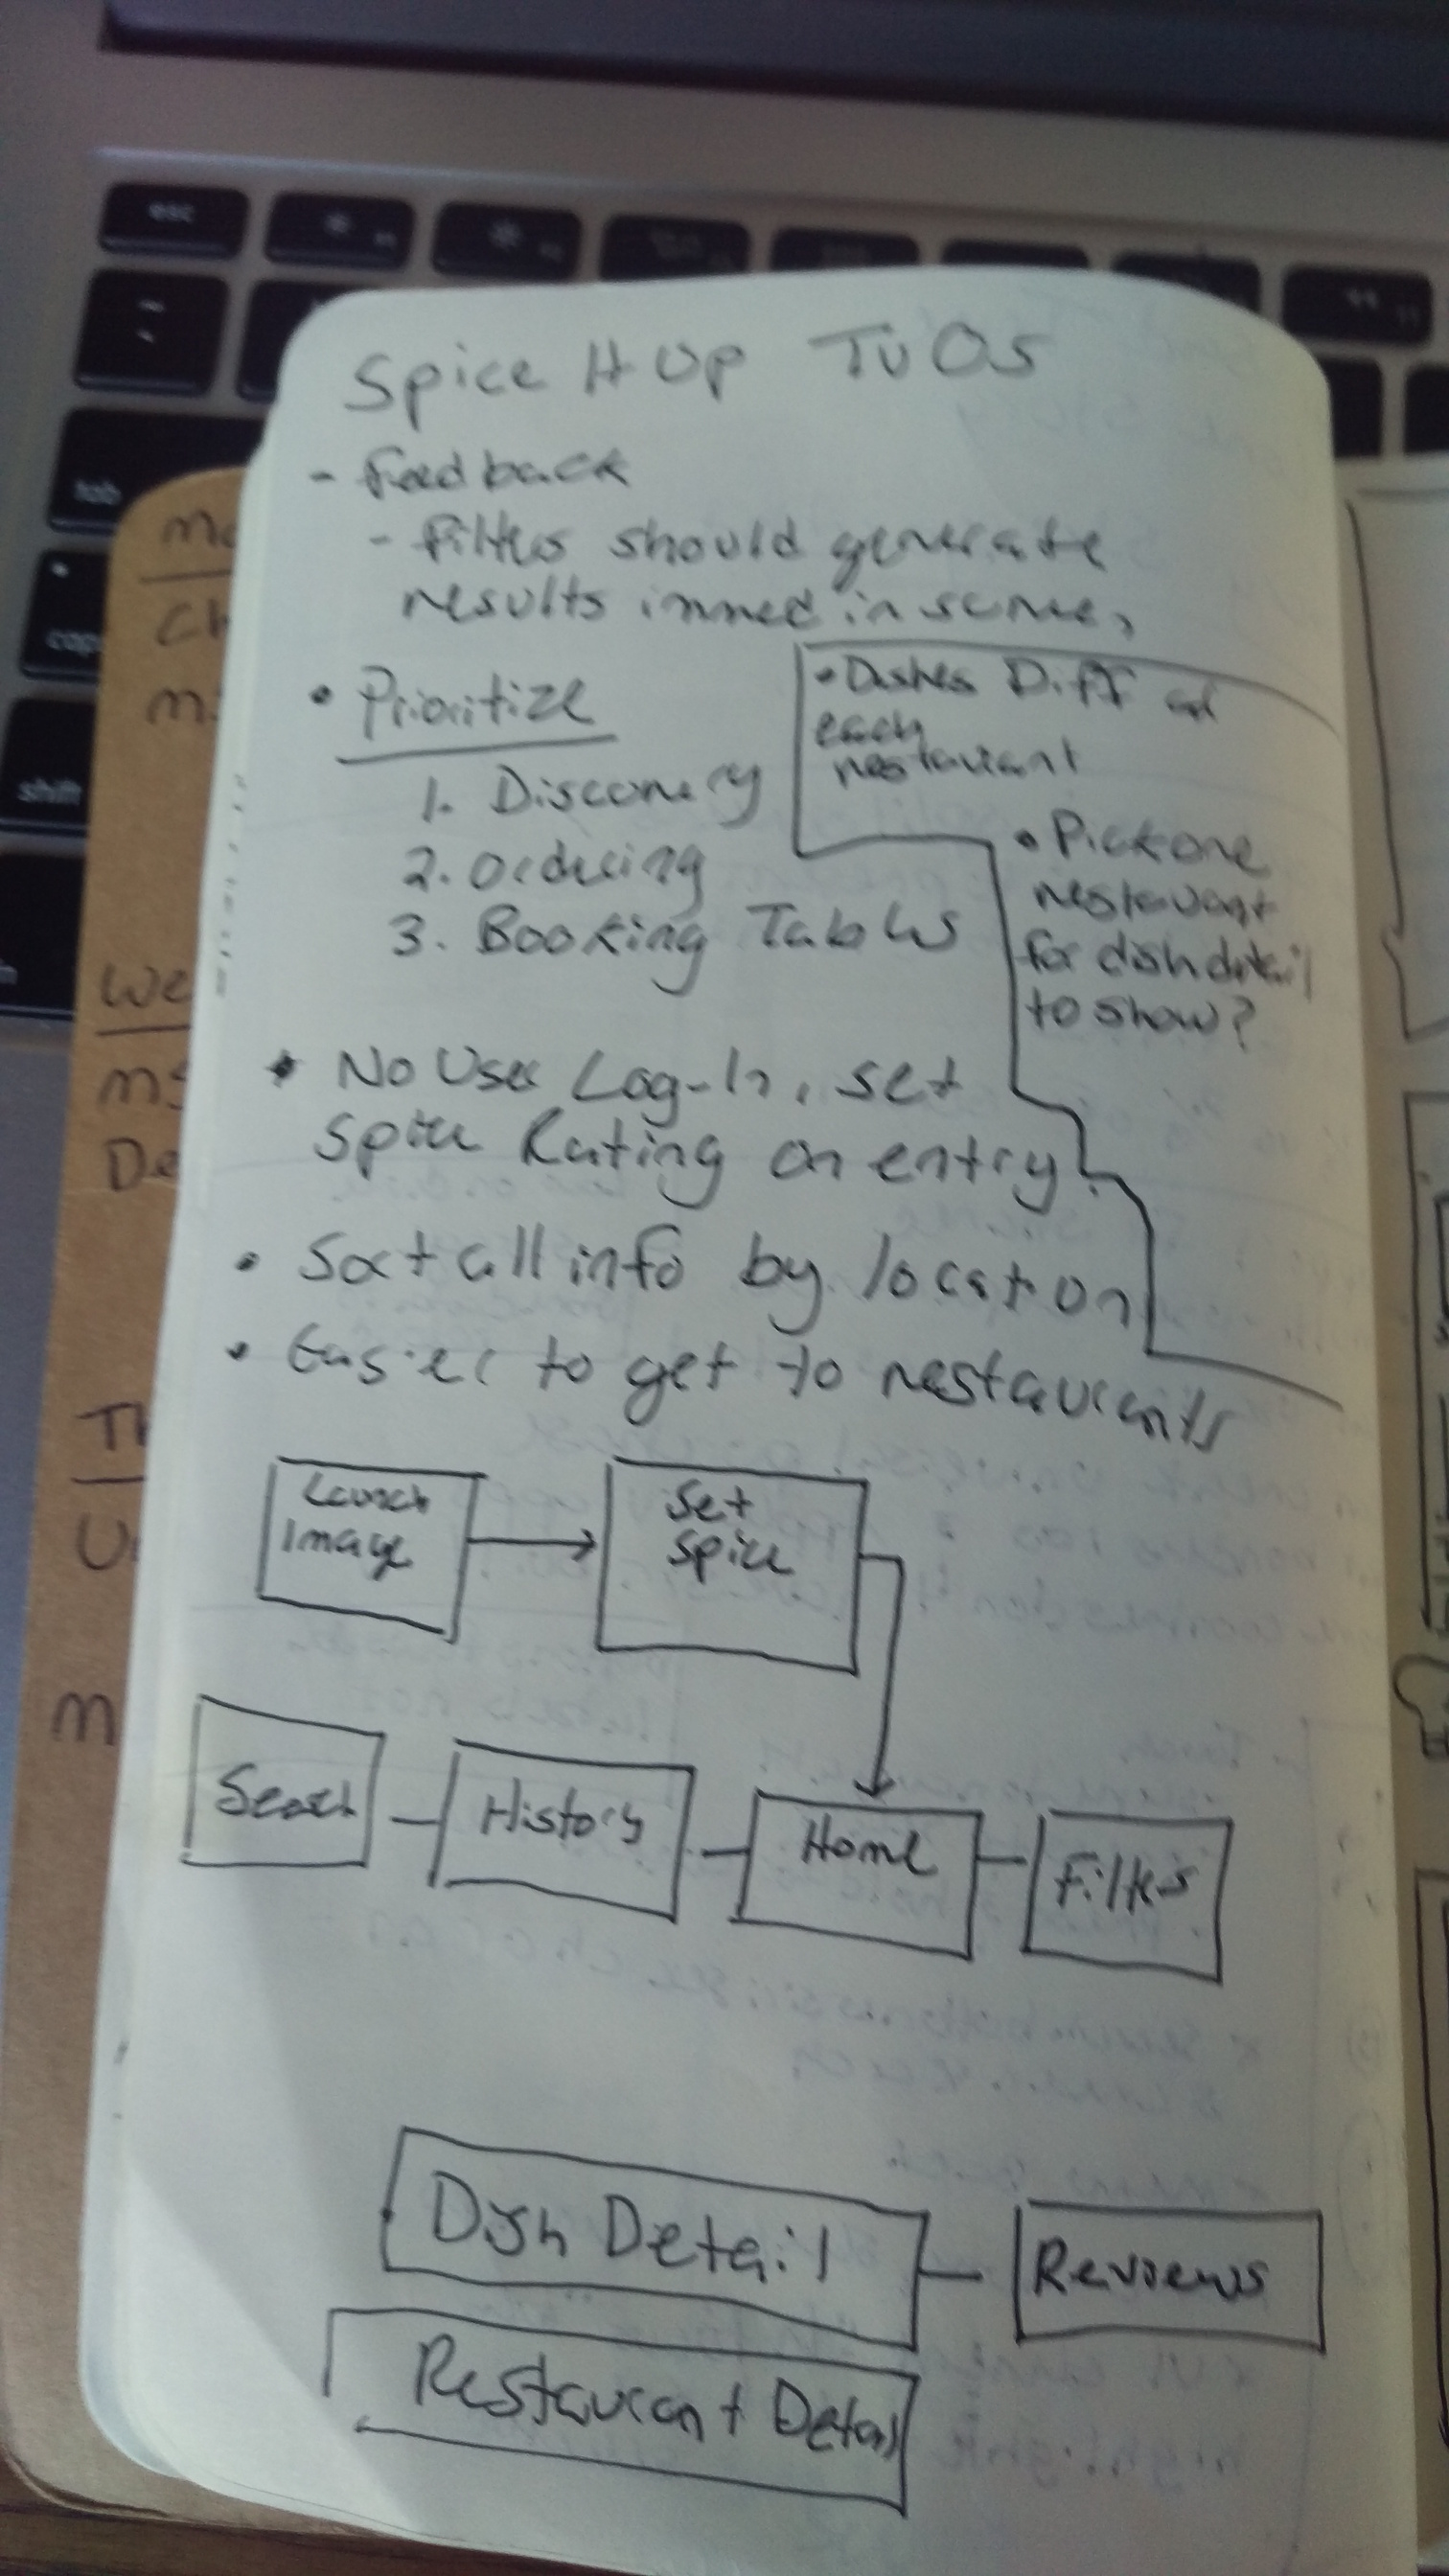 esc
tab
shift
Spice It Up TV OS
- Feedback
- Filters should generate
results immed in scene,
• Prioritize
1. Discovery
2. Ordering
3. Booking Tables
• Dishes Diff at
each
restaurant
• Pick one
restaurant
for dish detail
to show?
• No User Log-In, set
Spice Rating on entry.
• Sort all info by location
• Easier to get to restaurants
Launch
Image
Set
Spice
Search
History
Home
Filters
Dish Detail
Reviews
Restaurant Detail
We
De
Th